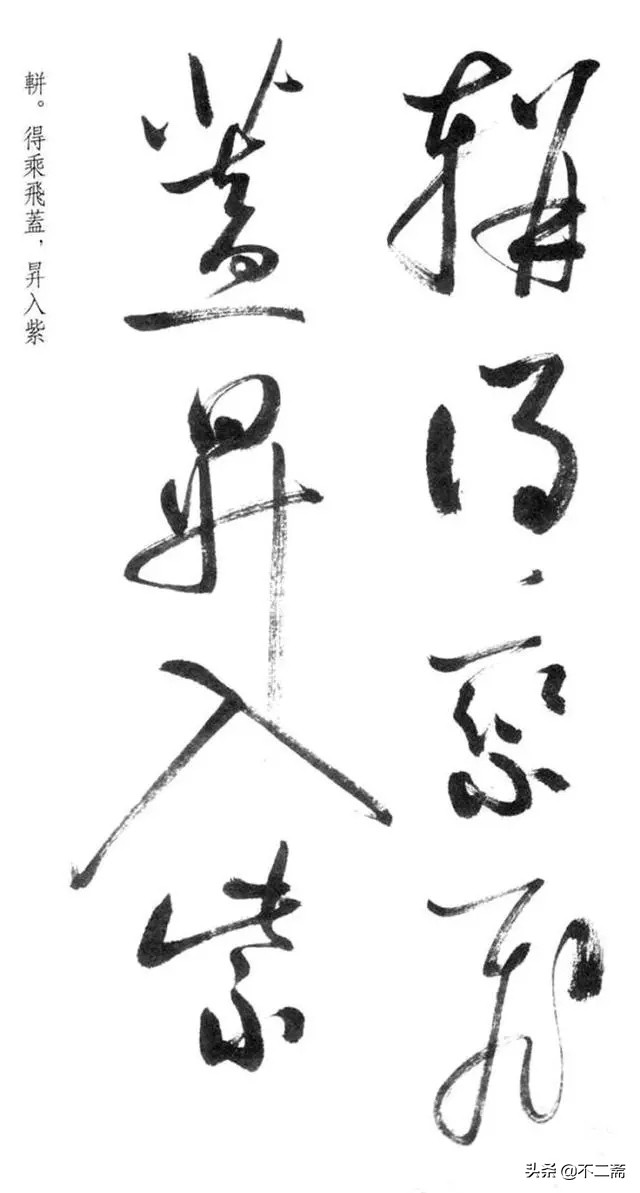 軿得乘飛
蓋昇入紫
軿。得乘飛蓋，昇入紫
头条 @不二斋